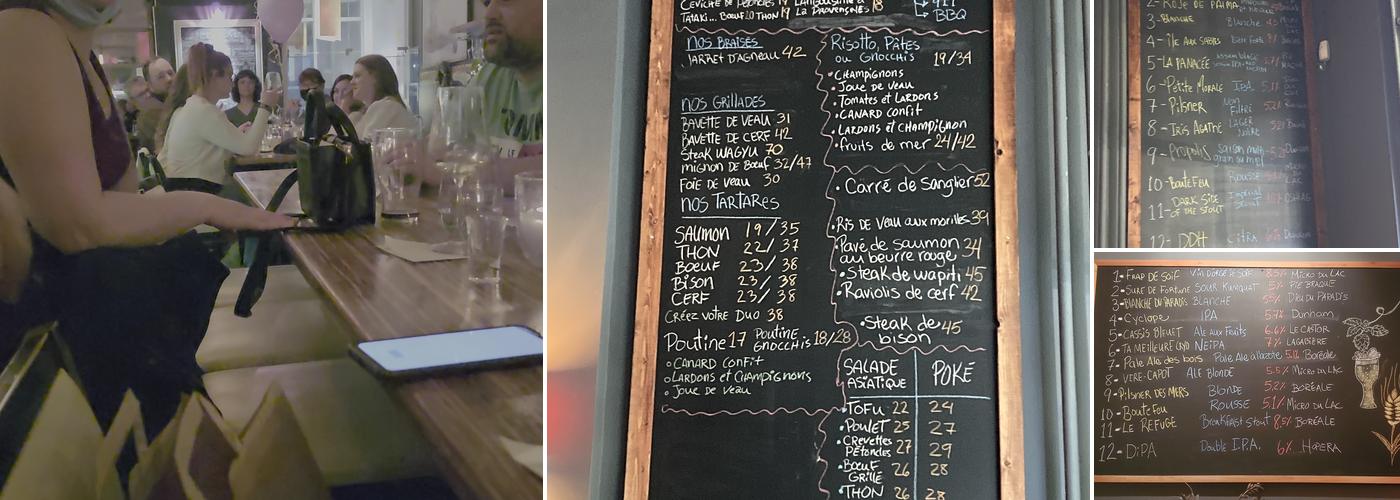 CEVICHE DE PÉTONCLES 19 LANGOUSTINE à
TATAKI... BOEUF 20 THON 19 LA PROVENÇALE 18
BBQ
NOS BRAISÉS
JARRET D'AGNEAU 42
NOS GRILLADES
BAVETTE DE VEAU 31
BAVETTE DE CERF 42
STEAK WAGYU 70
MIGNON DE BOEUF 32/47
FOIE DE VEAU 30
NOS TARTARES
SAUMON 19/35
THON 22/37
BOEUF 23/38
BISON 23/38
CERF 23/38
CRÉEZ VOTRE DUO 38
Poutine 17 POUTINE GNOCCHIS 18/28
CANARD CONFIT
LARDONS ET CHAMPIGNONS
JOUE DE VEAU
Risotto, Pâtes
ou Gnocchis 19/34
CHAMPIGNONS
JOUE DE VEAU
TOMATES ET LARDONS
CANARD CONFIT
LARDONS ET CHAMPIGNON
fruits de mer 24/42
Carré de Sanglier 52
RIS DE VEAU AUX MORILLES 39
Pavé de saumon 34
au beurre rouge
Steak de wapiti 45
Raviolis de cerf 42
Steak de 45
bison
SALADE ASIATIQUE POKÉ
TOFU 22 24
POULET 25 27
CREVETTES PÉTONCLES 27 29
BOEUF GRILLÉ 26 28
THON 26 28
2- ROSÉE DE PALMA
3- BLANCHE Blanche
4- ÎLE AUX SABLES
5- LA PANACÉE
6- Petite Morale IPA
7- Pilsner Non Filtré
8- IRIS AGATHE LAGER NOIRE
9- Propolis
10- BOUTEFEU ROUSSE
11- DARK SIDE OF THE STOUT IMPERIAL STOUT
12- DDH CITRA
1- FRAP DE SOIF MICRO DU LAC
2- SURE DE FORTUNE SOUR KUMQUAT 5% PIE BRAQUE
3- BLANCHE DU PARADIS BLANCHE DIEU DU PARADIS
4- Cyclope IPA 5.7% Dunham
5- CASSIS BLEUET ALE AUX FRUITS 6.6% LE CASTOR
6- TA MEILLEURE CRYO NEIPA 7% LAGABIÈRE
7- Pale Ale des bois Pale Ale à l'azote Boréale
8- VERE-CAPOT ALE BLONDE 5.5% MICRO DU LAC
9- PILSNER DES MERS Blonde 5.2% BORÉALE
10- BOUTEFEU ROUSSE 5.1% MICRO DU LAC
11- LE REFUGE Breakfast Stout 8.5% BORÉALE
12- DIPA Double I.P.A. HOPERA